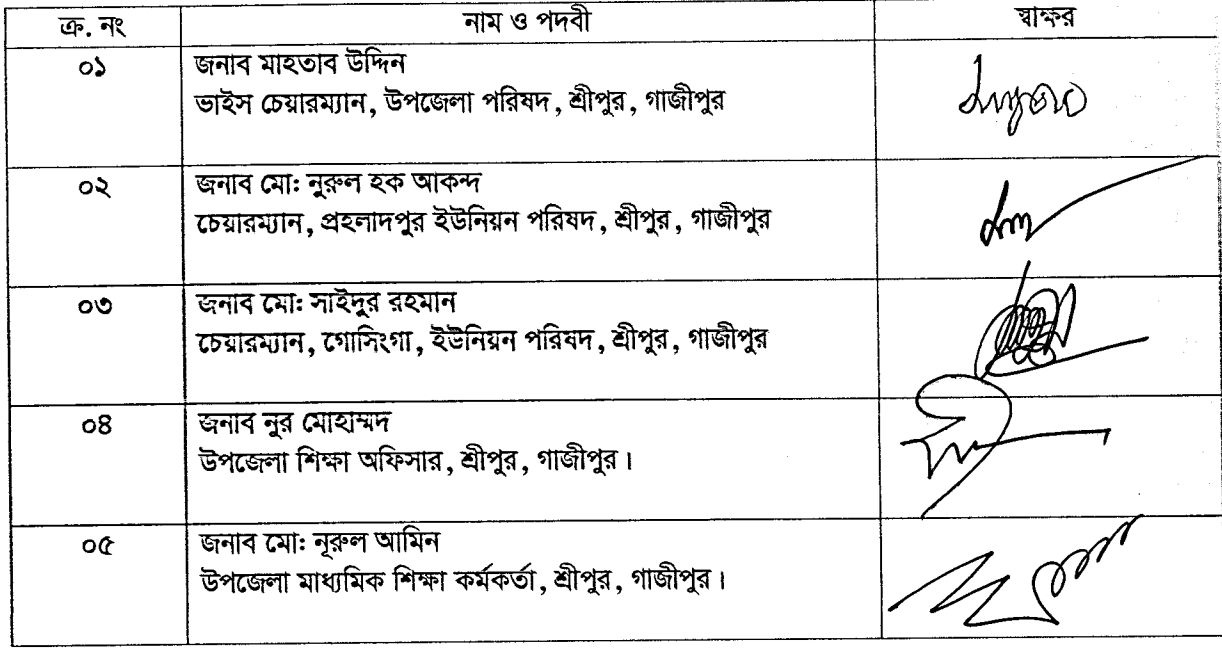 ক্র. নং নাম ও পদবী স্বাক্ষর
০১ জনাব মাহতাব উদ্দিন
ভাইস চেয়ারম্যান, উপজেলা পরিষদ, শ্রীপুর, গাজীপুর
০২ জনাব মো: নুরুল হক আকন্দ
চেয়ারম্যান, প্রহলাদপুর ইউনিয়ন পরিষদ, শ্রীপুর, গাজীপুর
০৩ জনাব মো: সাইদুর রহমান
চেয়ারম্যান, গোসিংগা, ইউনিয়ন পরিষদ, শ্রীপুর, গাজীপুর
০৪ জনাব নুর মোহাম্মদ
উপজেলা শিক্ষা অফিসার, শ্রীপুর, গাজীপুর।
০৫ জনাব মো: নূরুল আমিন
উপজেলা মাধ্যমিক শিক্ষা কর্মকর্তা, শ্রীপুর, গাজীপুর।